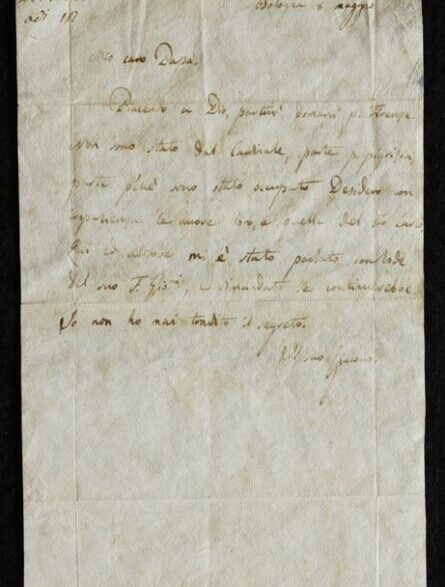 Bologna 8 maggio
Mio caro Papà.
Piacendo a Dio, partirò domani p. Firenze.
Non sono stato dal Cardinale, parte p. pigrizia,
parte p'chè sono stato occupato. Desidero con
impazienza le nuove loro, e quelle del Carlo
Qui ed altrove m. è stato parlato con lode
del suo e domandato se continuerebbe.
Io non ho mai tradito il segreto.
Il suo